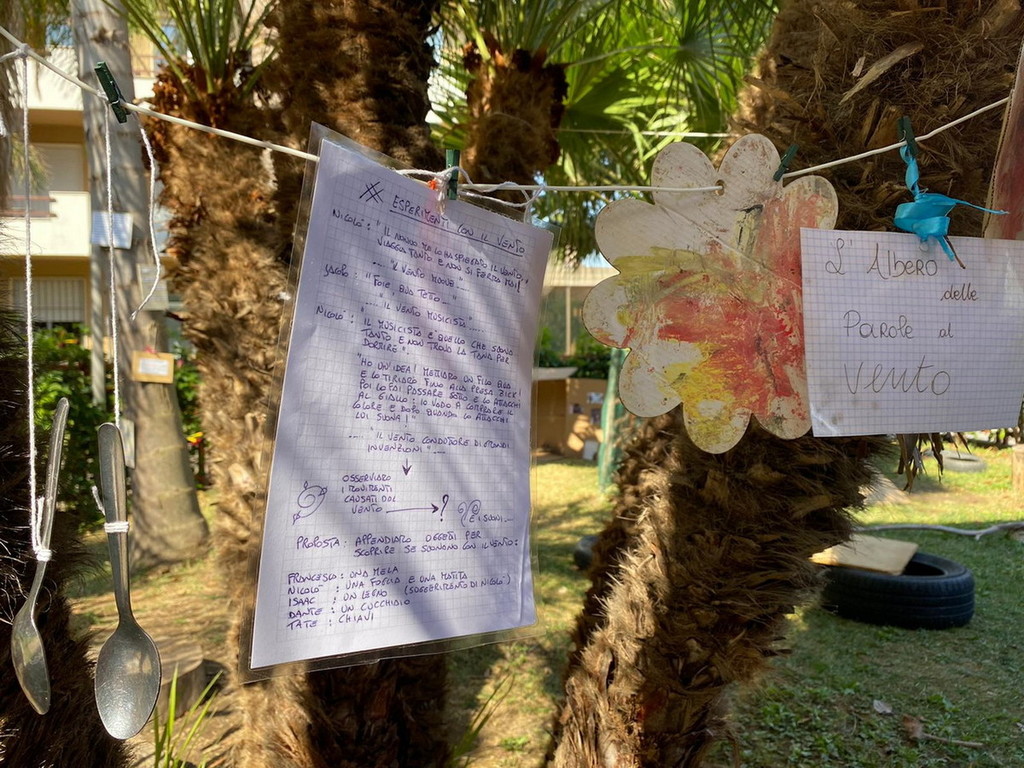 ESPERIMENTI CON IL VENTO
NICOLO': "IL MONDO ME LO HA SPIEGATO IL VENTO,
VIAGGIA TANTO E NON SI FERMA MAI"
.... "IL VENTO MUOVE"....
JACOPO: "FOIE, BUA TETTO..."
.... "IL VENTO MUSICISTA"....
NICOLO': "IL MUSICISTA È QUELLO CHE SUONA
TANTO E NON TROVA LA TANA PER
DORMIRE".
"HO UN'IDEA! METTIAMO UN FILO BLU
E LO TIRIAMO FINO ALLA PRESA ZICK!
POI LO FAI PASSARE SOTTO E LO ATTACCHI
AL GIALLO; IO VADO A COMPRARE IL
COLORE E DOPO QUANDO LO ATTACCHI
LUI SUONA!"
.... "IL VENTO CONDUTTORE DI GRANDI
INVENZIONI"....
OSSERVIAMO
I MOVIMENTI
CAUSATI DAL
VENTO ? E I SUONI...
PROPOSTA: APPENDIAMO OGGETTI PER
SCOPRIRE SE SUONANO CON IL VENTO:
FRANCESCO: UNA MELA
NICOLO': UNA FOGLIA E UNA MATITA
ISAAC: UN LEGNO (SUGGERIMENTO DI NICOLO')
DANTE: UN CUCCHIAIO
TATE: CHIAVI
L'Albero
delle
Parole al
Vento